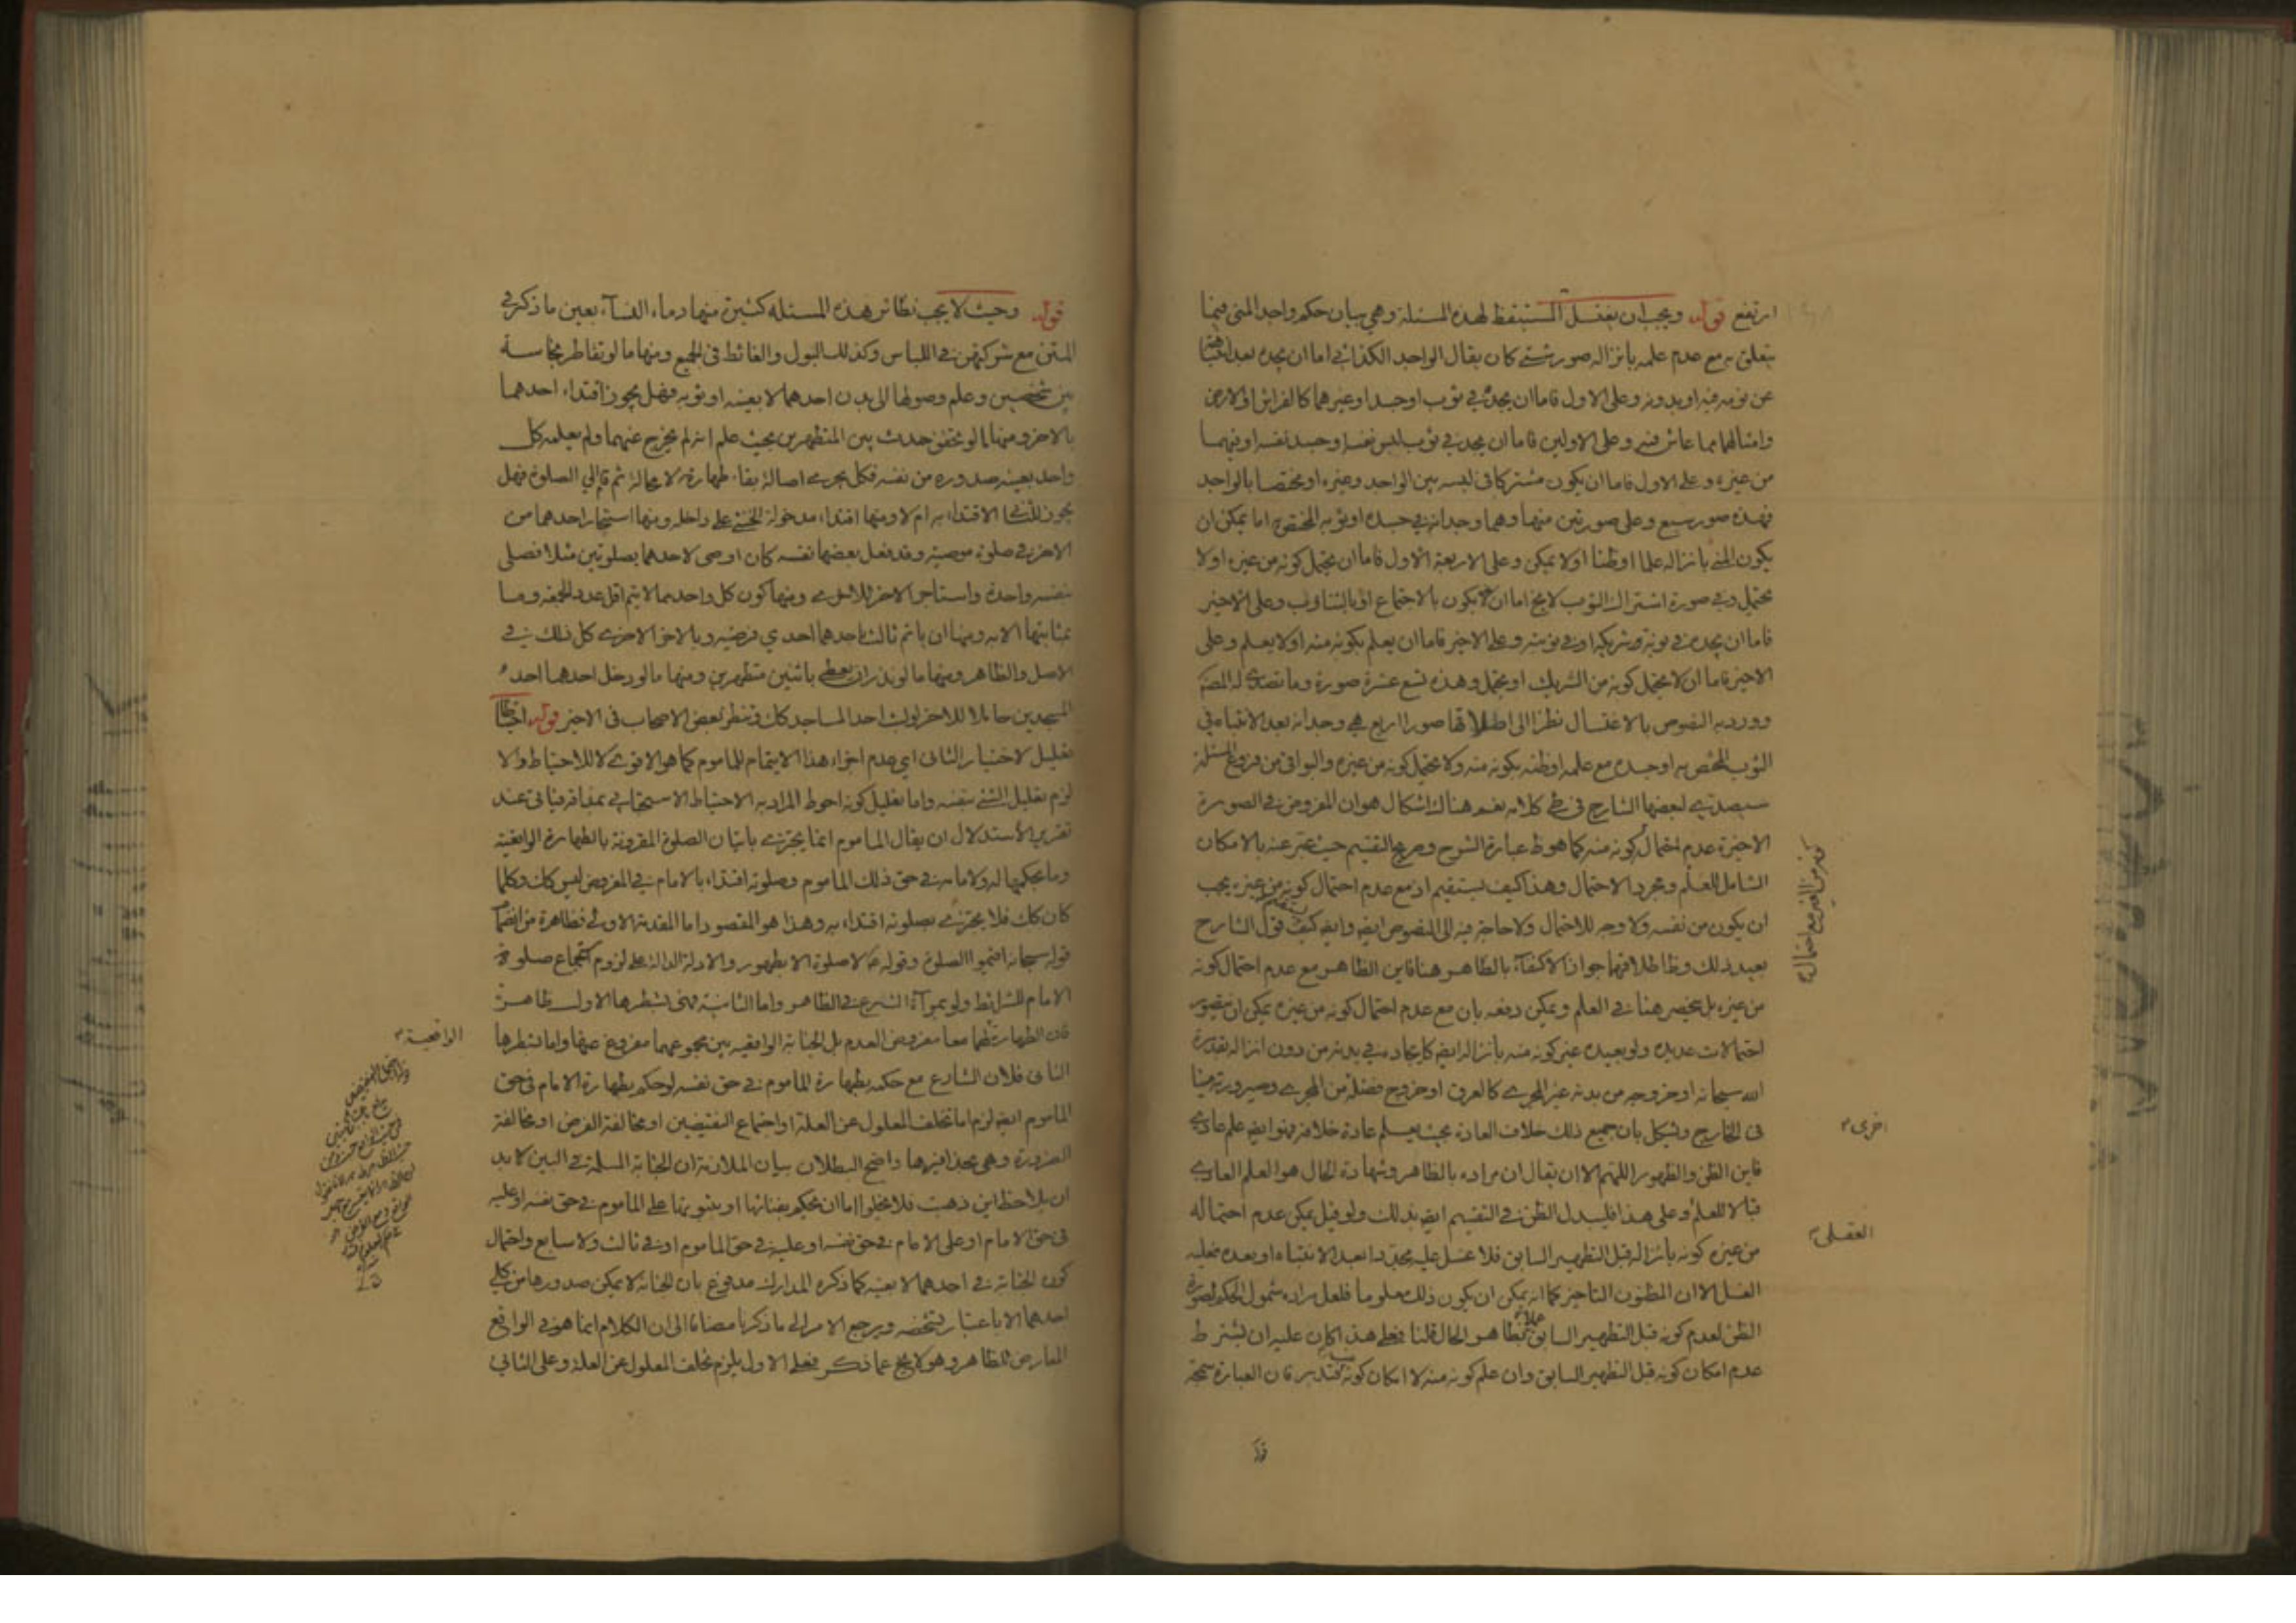 ارتفع قوله ويجب ان يغتسل المستيقظ لهذه المسئلة وهي بيان حكم واجد المني فيما
يتعلق به مع عدم علمه بانزاله صور شتى كان يقال الواجد الكذائى اما ان يجده بعد
عن نومه فيه او بدونه وعلى الاول فاما ان يجده في ثوب او جسد او غيرهما كالفراش او الارض
وامثالهما مما عاش فيه وعلى الاولين فاما ان يجده في ثوب لبس نفسه او جسد نفسه او فيهما
من غيره وعلى الاول فاما ان يكون مشتركا في لبسه بين الواجد وغيره او مختصا بالواجد
فهذه صور سبع وعلى صورتين منها وهما وجدانه في جسده او ثوبه المختص به اما يمكن ان
يكون المني بانزاله علما او ظنا اولا يمكن وعلى الاربعة الاول فاما ان يحتمل كونه من غيره اولا
يحتمل وفي صورة اشتراك الثوب لا يخ اما ان يكون بالاجتماع او بالتناوب وعلى الاخير
فاما ان يجده في نوبة شريكه او في نوبته وعلى الاخير فاما ان يعلم بكونه منه اولا يعلم وعلى
الاخير فاما ان لا يحتمل كونه من الشريك او يحتمل وهذه تسع عشرة صورة وما تصدى له المصنف
وورد به النصوص بالاغتسال نظرا الى اطلاقها صورا اربع هي وجدانه بعد الانتباه في
الثوب المختص به او جسده مع علمه او ظنه بكونه منه ولا يحتمل كونه من غيره والبواقي من فروع المسئلة
سيصدى لبعضها الشارح في طي كلامه نعم هناك اشكال هو ان المفروض في الصورة
الاخيرة عدم احتمال كونه منه كما هو ظ عبارة الشرح وصريح التقسيم حيث عبر عنه بالامكان
الشامل للعلم ومجرد الاحتمال وهذا كيف يستقيم اذ مع عدم احتمال كونه من غيره يجب
ان يكون من نفسه ولا وجه للاحتمال ولا حاجة فيه الى النصوص ايضا وايضا كيف قول الشارح
بعيد ذلك وظ اطلاقهما جواز الاكتفاء بالظاهر هنا فاين الظاهر مع عدم احتمال كونه
من غيره بل ينحصر هنا في العلم ويمكن دفعه بان مع عدم احتمال كونه من غيره يمكن ان يتصور
احتمالات عديدة ولو بعيدة غير كونه منه بانزاله ايضا كايجاده في بدنه من دون انزاله بقدرة
الله سبحانه او خروجه من بدنه غير المجرى كالعرق او خروج فضلة من المجرى وصيرورته منيا
فى الخارج ويشكل بان جميع ذلك خلاف العادة بحيث يعلم عادة خلافه فهو ايضا علم عادي
فاين الظن والظهور اللهم الا ان يقال ان مراده بالظاهر وشهادة الحال هو العلم العادي
قبالا للعلم وعلى هذا فليبدل الظن في التقسيم ايضا بذلك ولو قيل يمكن عدم احتماله
من غيره كونه بانزاله قبل التطهير السابق فلا غسل عليه مجددا بعد الانتباه او بعده فعليه
الغسل الا ان المظنون التاخير كما انه يمكن ان يكون ذلك معلوما فلعل مراده شمول الحكم لصورة
الظن لعدم كونه قبل التطهير السابق بظاهر الحال قلنا فعلى هذا كان عليه ان يشترط
عدم امكان كونه قبل التطهير السابق وان علم كونه منه لا امكان كونه فتدبر فان العبارة
اخرى
العقلى
قوله
قوله وحيث لا يجب نظائر هذه المسئلة كثيرة منها دماء النساء بعين ما ذكر في
المتن مع شركتهن في اللباس وكذلك البول والغائط في الجميع ومنها ما لو تقاطر نجاسة
بين شخصين وعلم وصولها الى بدن احدهما لا بعينه او ثوبه فهل يجوز اقتداء احدهما
بالاخر ومنها ما لو تحقق حدث بين المتطهرين بحيث علم انه لم يخرج عنهما ولم يعلمه كل
واحد بعينه صدوره من نفسه فكل يجري اصالة بقاء طهارة لا محالة ثم قام الى الصلوة فهل
يجوز للثاني الاقتداء به ام لا ومنها اقتداء مدخولة الخنثى على داخله ومنها استيجار احدهما من
الاخر في صلوة موصية وقد فعل بعضها نفسه كان اوصى لاحدهما بصلوتين مثلا فصلى
بنفسه واحدة واستاجر الاخر للاخرى ومنها كون كل واحد مما لا يتم اقل عدد الجمعة وما
بمثابتها الا به ومنها ان ياتم ثالث باحدهما احدى فرضيه وبالاخر الاخرى كل ذلك في
الاصل والظاهر ومنها ما لو نذر ان يعطى باثنين متطهرين ومنها ما لو دخل احدهما احد
المسجدين حاملا للاخر لوث احد المساجد كل في نظر بعض الاصحاب في الاخير قوله احتياطا
تعليل لاختيار الثاني اي عدم اجزاء هذا الايتمام للماموم كما هو الاقوى لا للاحتياط والا
لزم تعليل الشئ بنفسه واما تعليل كونه احوط المراد به الاحتياط الاستحبابي فياتى عند
تقرير الاستدلال ان يقال الماموم انما يجتزى باتيان الصلوة المقرونة بالطهارة الواقعية
وما يحكم بها له ولامامه في حق ذلك الماموم وصلوته اقتداء بالامام في المفروض ليس كذلك وكلما
كان كك فلا يجتزئ بصلوته اقتداء به وهذا هو المقصود اما المقدمة الاولى فظاهرة من انضمام
قوله سبحانه اقيموا الصلوة وقوله ع لا صلوة الا بطهور والادلة الدالة على لزوم استجماع صلوة
الامام للشرائط ولو بمرآة الشرع في الظاهر واما الثانية فهى بشطرها الاول ظاهرة
فان الطهارة لهما معا مفروض العدم بل الجنابة الواقعية بين مجموعهما مفروغ عنها واما بشطرها
الثانى فلان الشارع مع حكمه بطهارة الماموم في حق نفسه لو حكم بطهارة الامام في حق
الماموم ايضا لزم اما تخلف المعلول عن العلة او اجتماع النقيضين او مخالفة الفرض او مخالفة
الضرورة وهي بحذافيرها واضح البطلان بيان الملازمة ان الجنابة المسلمة في البين لا بد
ان يلاحظ اين ذهبت فلا يخلو اما ان يحكم بفنائها او بثبوتها على الماموم في حق نفسه او عليه
في حق الامام او على الامام في حق نفسه او عليه في حق الماموم او في ثالث ولا سابع واحتمال
كون الجنابة في احدهما لا بعينه كما ذكره المدارك مدفوع بان الجنابة لا يمكن صدورها من كلي
احدهما الا باعتبار تشخصه ويرجع الامر الى ما ذكرنا مضافا الى ان الكلام انما هو في الواقع
المعارض للظاهر وهو لا يخ عما ذكر فعلى الاول يلزم تخلف المعلول عن العلة وعلى الثاني
الواقعية